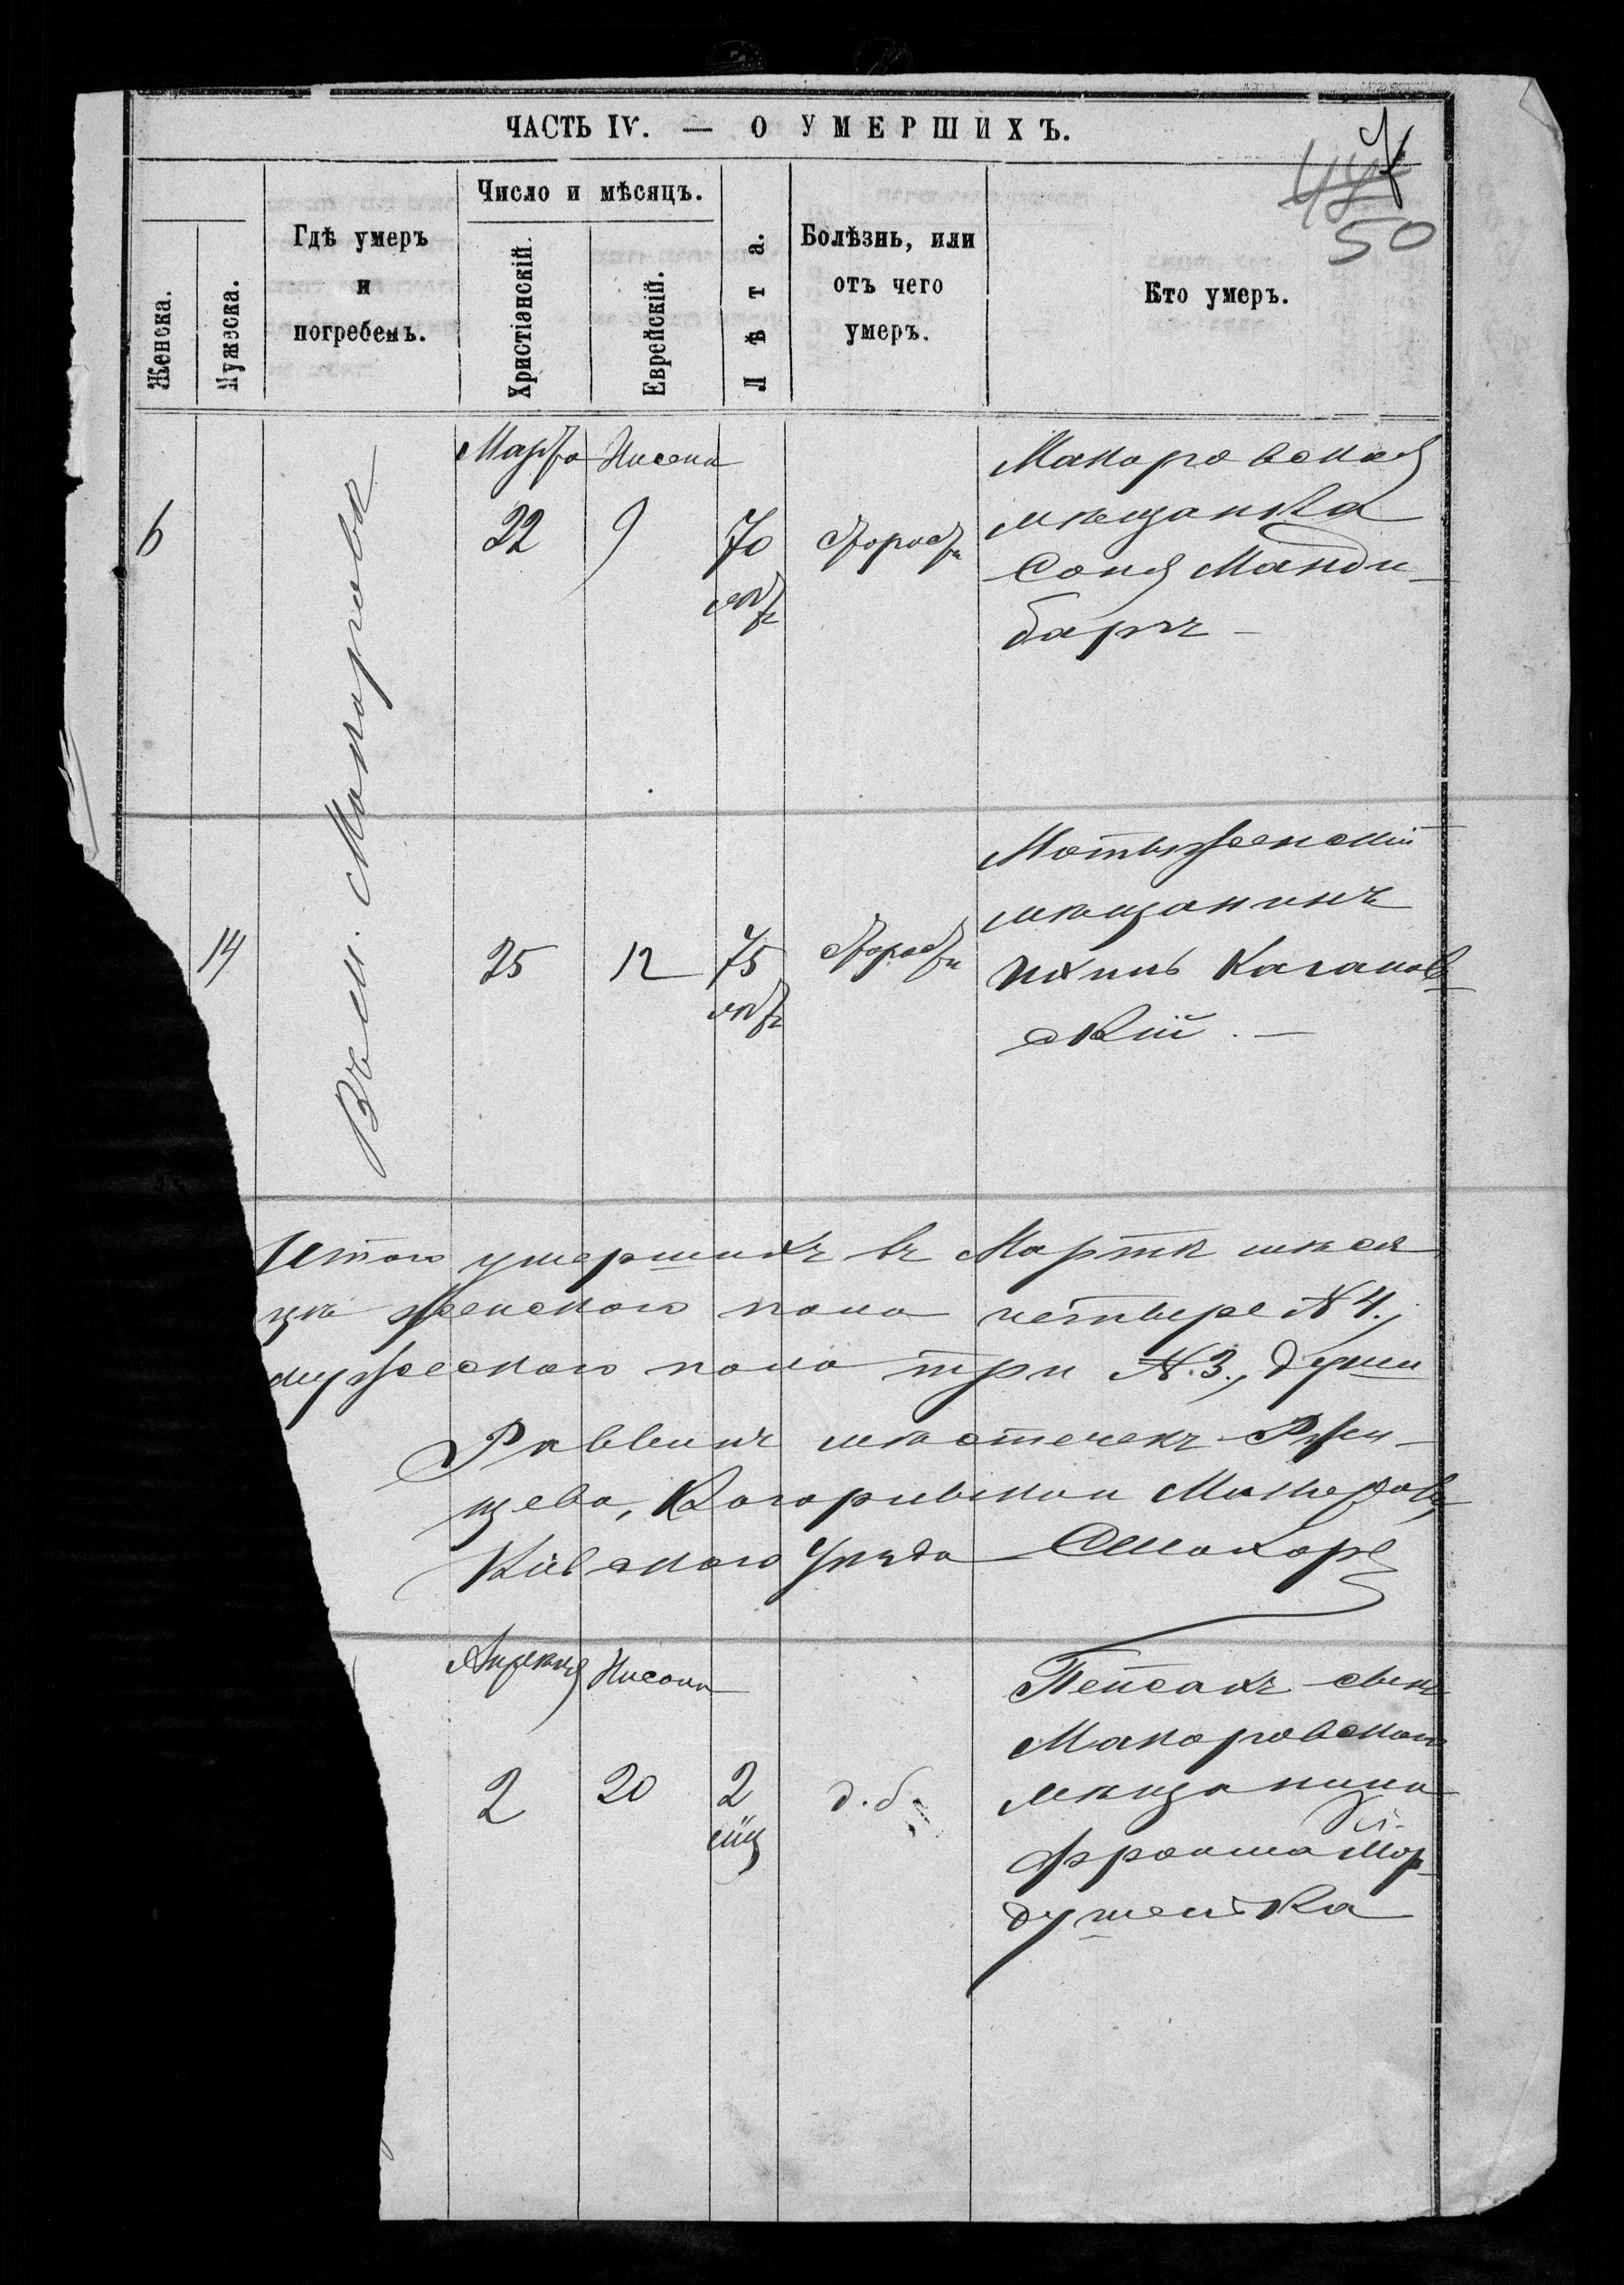 ЧАСТЬ IV. — О УМЕРШИХЪ.
50
Женска.
Мужеска.
Гдѣ умеръ
и
погребенъ.
Число и мѣсяцъ.
Христіанскій.
Еврейскій.
Лѣта.
Болѣзнь, или
отъ чего
умеръ.
Кто умеръ.
Въ м. Макаровѣ
Марта Нисона
6 22 9 70 лѣтъ старости
Макаровская
мѣщанка
Соня Манди-
баръ —
14 25 12 75 лѣтъ старости
Мотыженскій
мѣщанинъ
Кагановскій. —
Итого умершихъ въ Мартѣ мѣся
цѣ женскаго пола четыре N 4.,
мужескаго пола три N. 3., души
Раввинъ мѣстечекъ Ржи-
щева, Кагарлыка и Макарова
Кіевскаго уѣзда
Апрѣля Нисона
2 20 2 мѣц д. б.
Пейсахъ сынъ
Макаровскаго
мѣщанина
Фроима Мор-
душенка